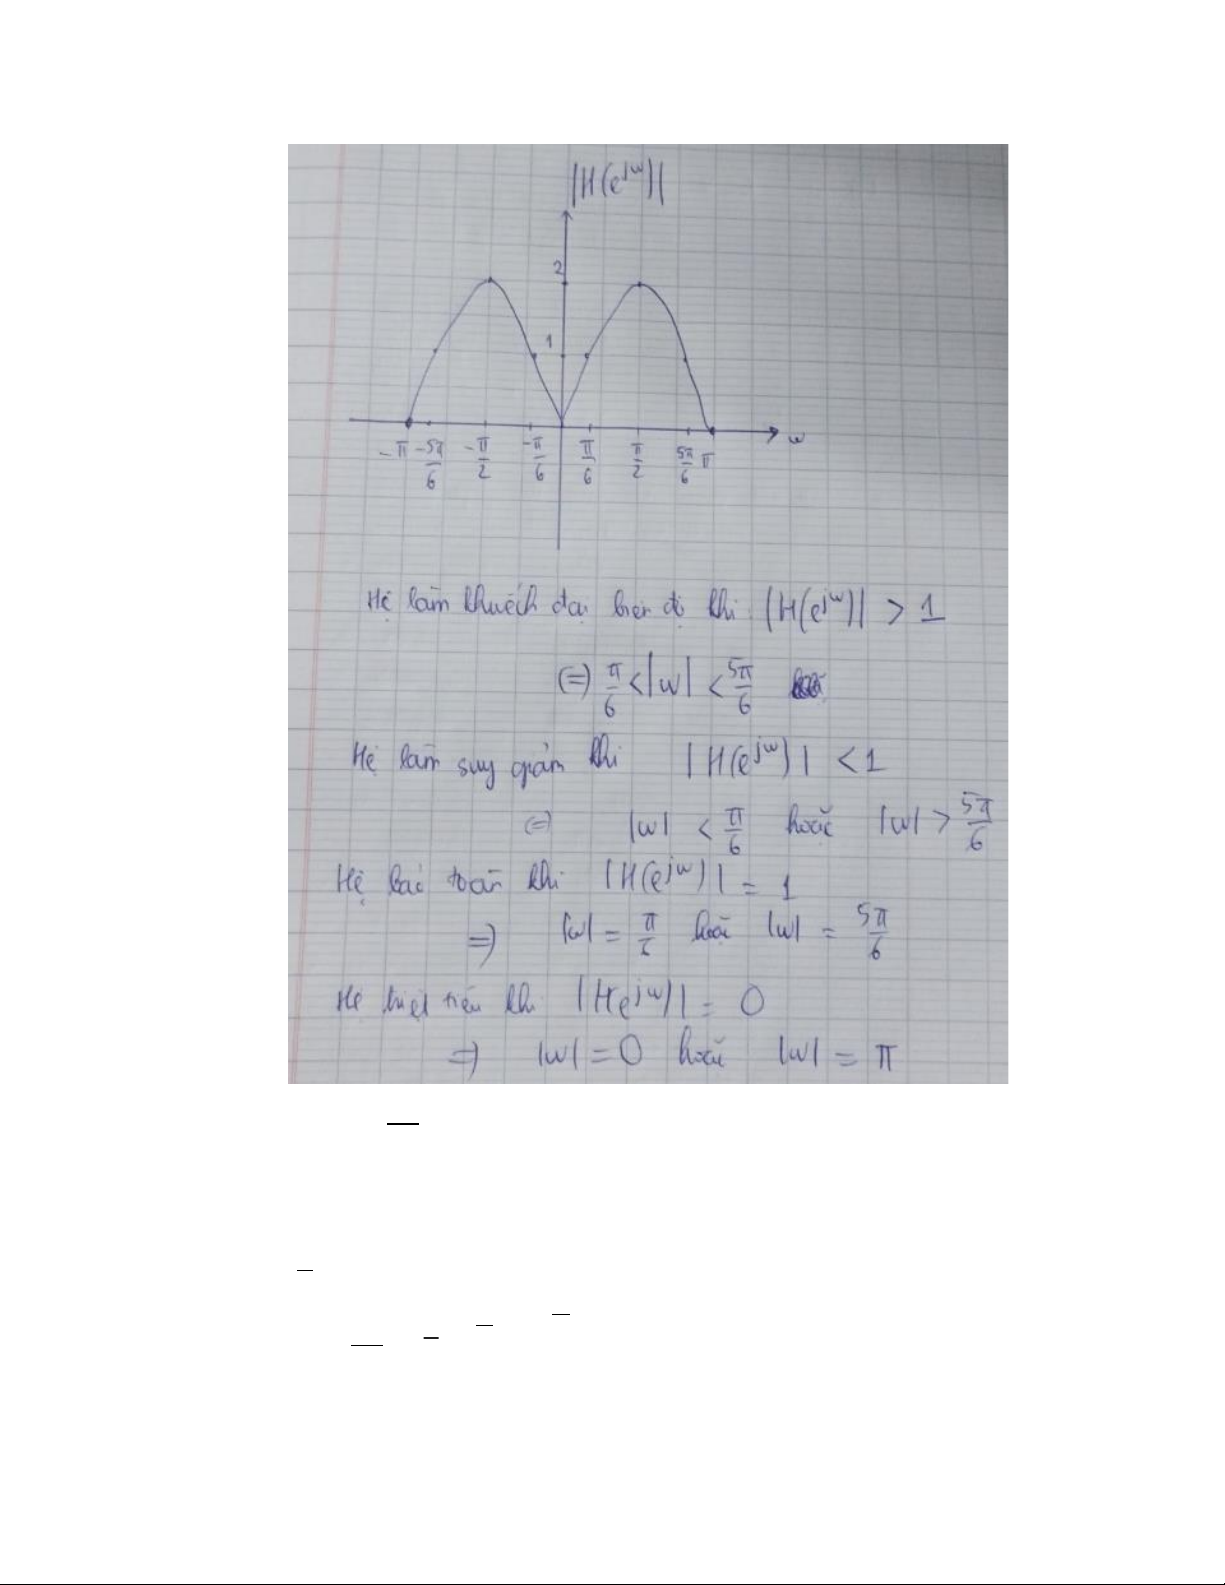 |H(e^{jω})|
2
1
-π -5π/6 -π/2 -π/6 π/6 π/2 5π/6 π ω
Hệ làm khuếch đại biên độ khi |H(e^{jω})| > 1
(=) π/6 < |ω| < 5π/6
Hệ làm suy giảm khi |H(e^{jω})| < 1
(=) |ω| < π/6 hoặc |ω| > 5π/6
Hệ bảo toàn khi |H(e^{jω})| = 1
=) |ω| = π/6 hoặc |ω| = 5π/6
Hệ triệt tiêu khi |H(e^{jω})| = 0
=) |ω| = 0 hoặc |ω| = π